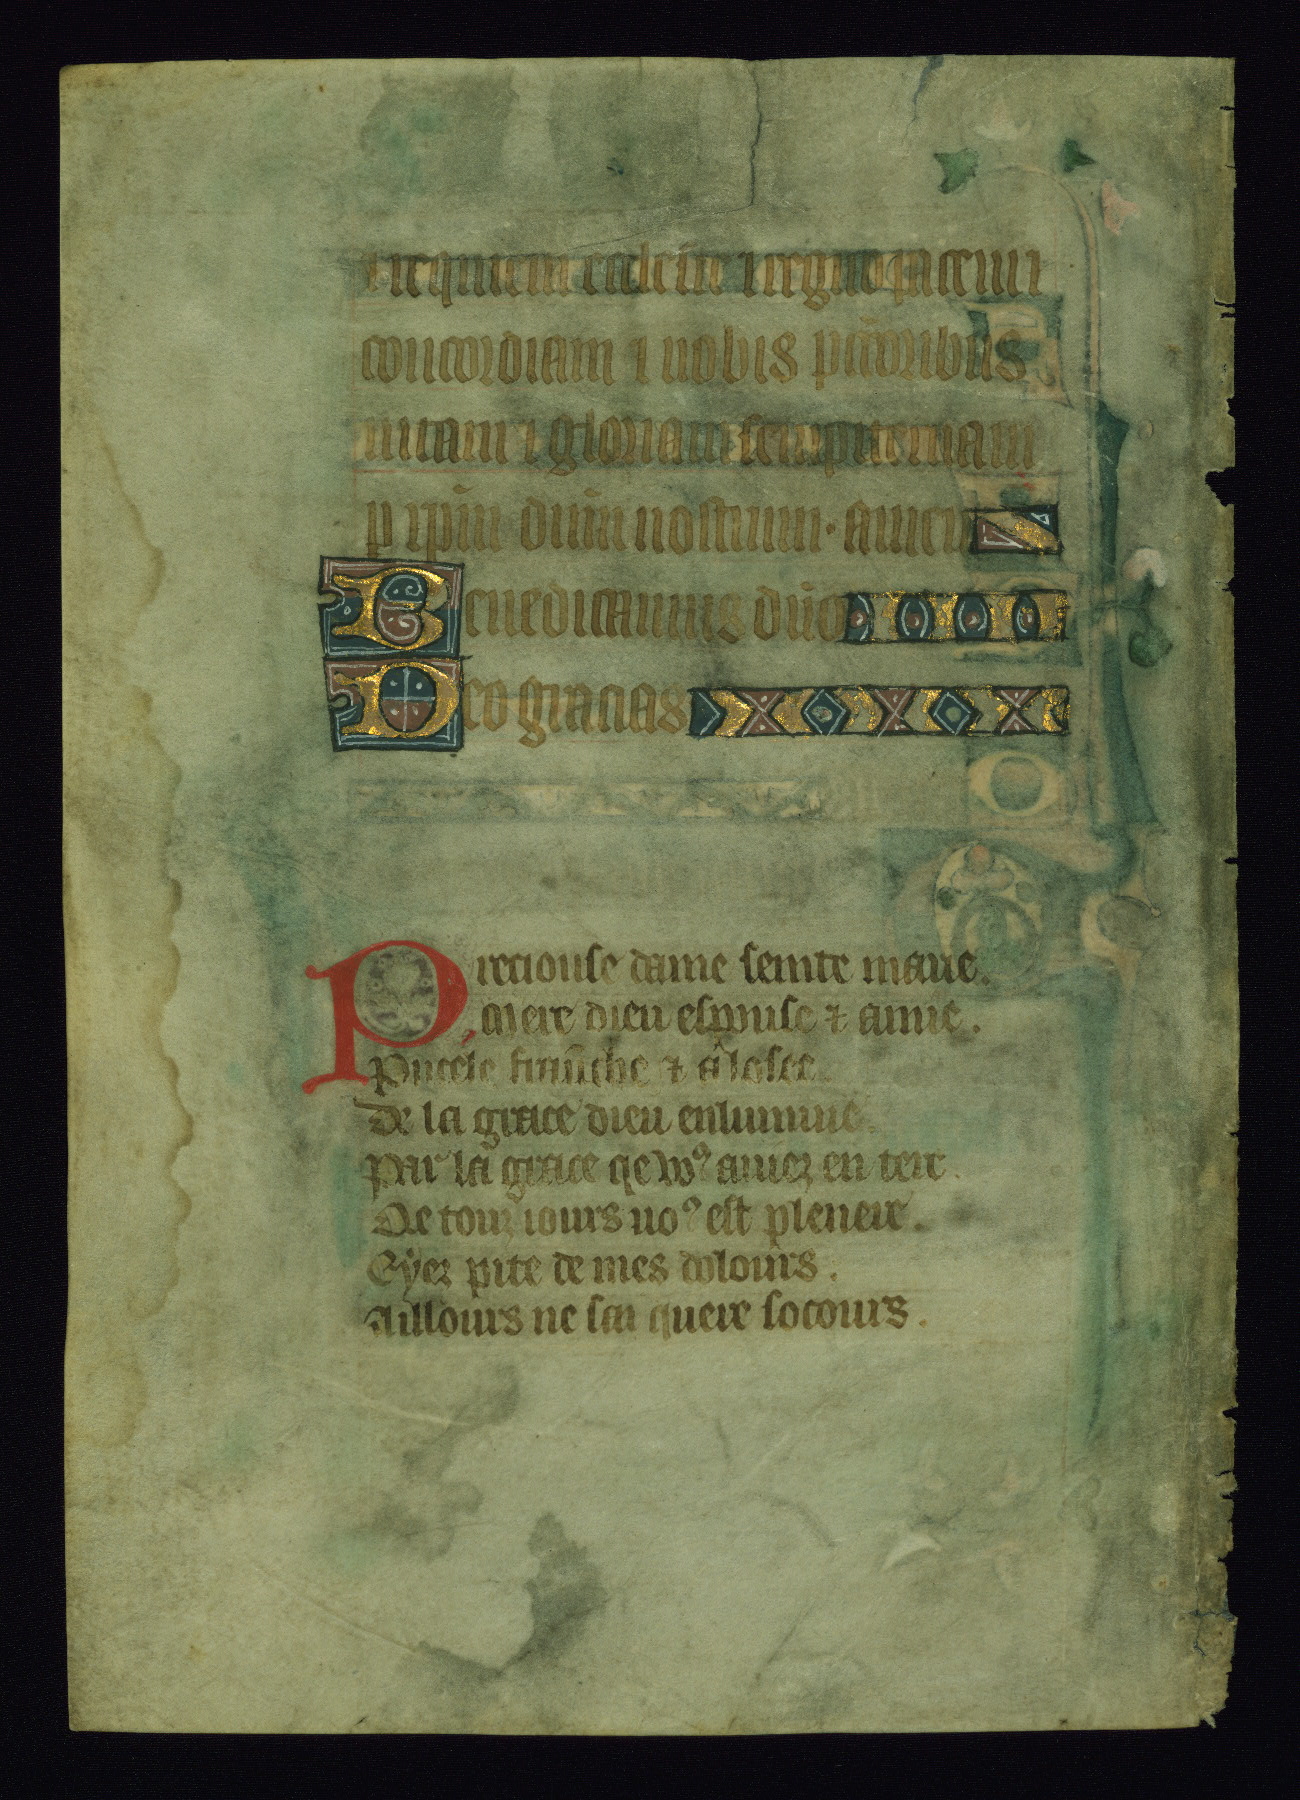 ⁊ requiem ecclesie ⁊ regno pacem ⁊
concordiam ⁊ nobis pccōribus
uitam ⁊ gloriam sempiternam
p xp̄m dn̄m nostrum · amen
Benedicamus dn̄o
Deo gracias
Preciouse dame seinte marie.
Mere dieu espouse ⁊ amie.
Pucele franche ⁊ aloser
De la grace dieu enlumine.
Par la grace qe voꝰ auiez en tere.
De touz iours uoꝰ est plenere.
Eyez pite de mes dolours.
Aillours ne sai quere socours.